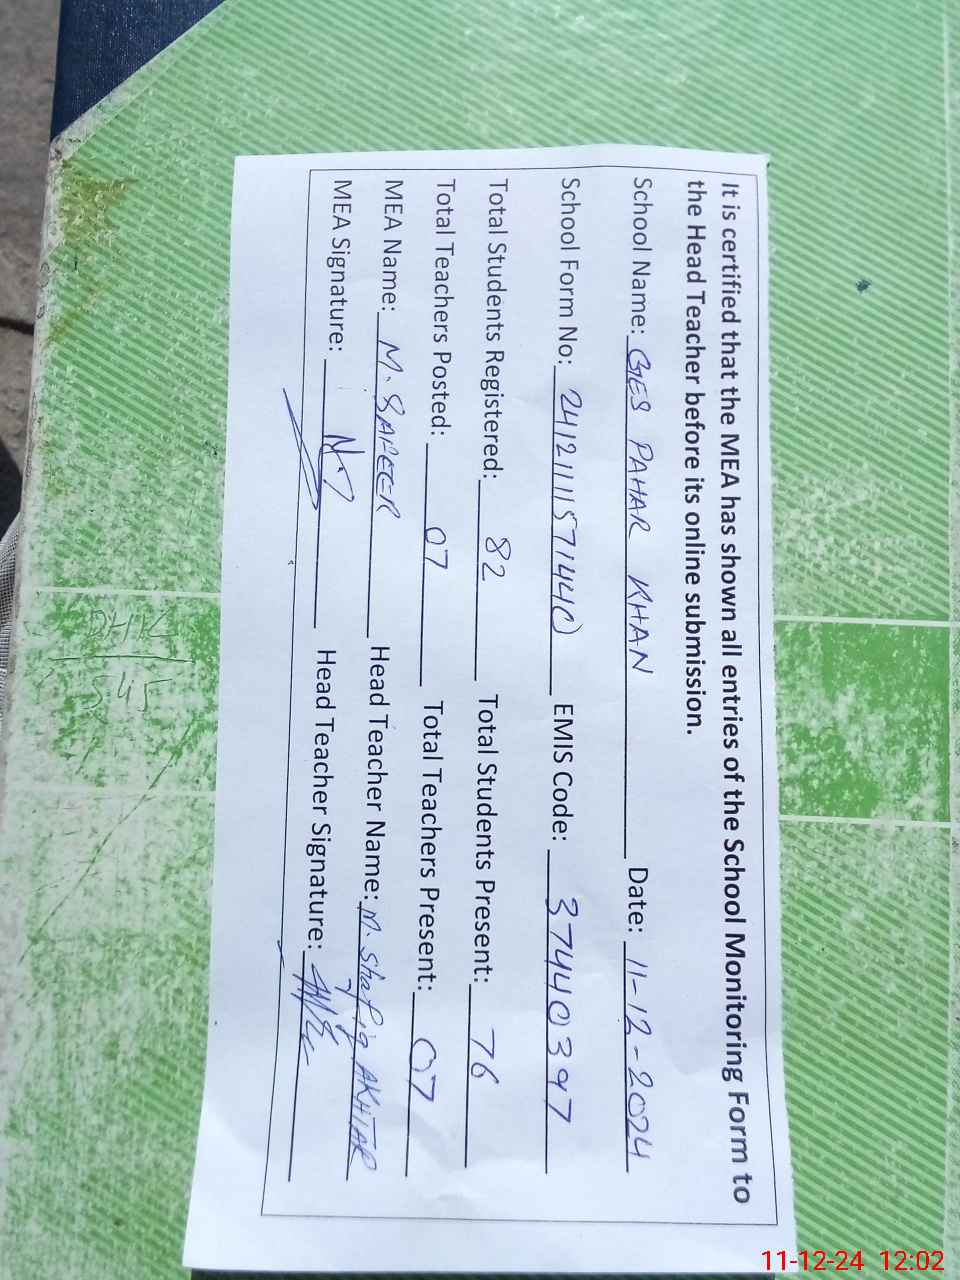 It is certified that the MEA has shown all entries of the School Monitoring Form to
the Head Teacher before its online submission.
School Name: GES PAHAR KHAN Date: 11-12-2024
School Form No: EMIS Code: 37440397
Total Students Registered: 82 Total Students Present: 76
Total Teachers Posted: 07 Total Teachers Present: 07
MEA Name: M. SAFEER Head Teacher Name: M. Shafiq AKHTAR
MEA Signature: Head Teacher Signature:
545
11-12-24 12:02